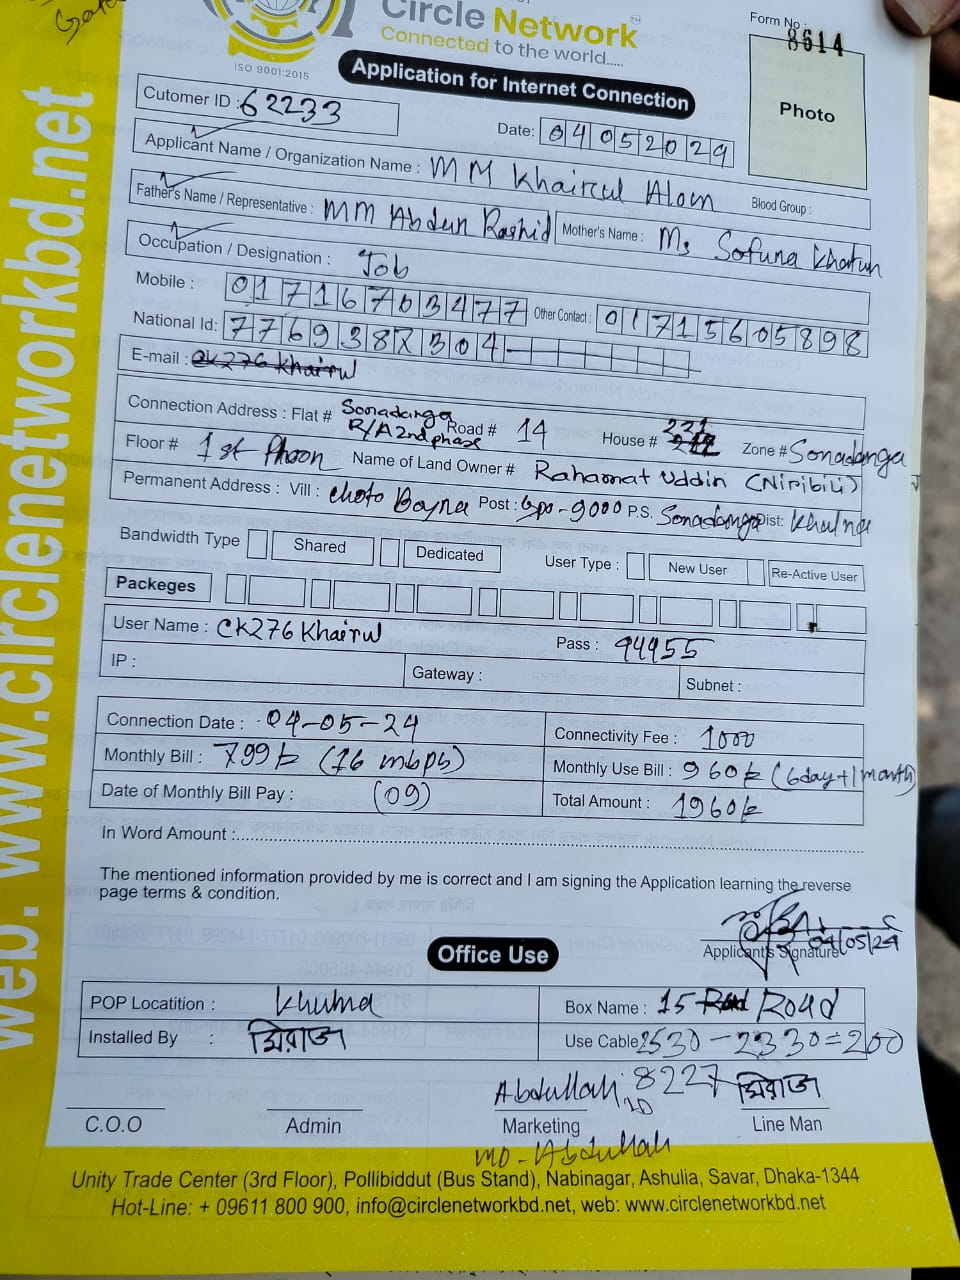 Circle Network
Connected to the world.....
ISO 9001:2015
Form No :
8614
Application for Internet Connection
Photo
Cutomer ID : 62233
Date: 04052029
Applicant Name / Organization Name : MM Khairul Alom
Blood Group :
Father's Name / Representative : MM Abdur Rashid Mother's Name : Ms Sofura Khatun
Occupation / Designation : Job
Mobile : 01716703477 Other Contact : 01715605898
National Id: 7769387304
E-mail : CK276 Khairul
Connection Address : Flat # Sonadanga R/A 2nd phase Road # 14 House # 221 Zone # Sonadanga
Floor # 1st Phoon Name of Land Owner # Rahamat Uddin (Niribili)
Permanent Address : Vill : choto Boyra Post : Gpo-9000 P.S. Sonadanga Dist: Khulna
Bandwidth Type Shared Dedicated User Type : New User Re-Active User
Packeges
User Name : CK276 Khairul Pass : 94955
IP : Gateway : Subnet :
Connection Date : 04-05-24 Connectivity Fee : 1000
Monthly Bill : 799 tk (16 mbps) Monthly Use Bill : 960 tk (6day+1month)
Date of Monthly Bill Pay : (09) Total Amount : 1960 tk
In Word Amount :
The mentioned information provided by me is correct and I am signing the Application learning the reverse
page terms & condition.
04/05/24
Applicant's Signature
Office Use
POP Locatition : Khulna Box Name : 15 Road
Installed By : মিরাজ Use Cable 2530-2330=200
Abdullah ID 8227 মিরাজ
C.O.O Admin Marketing Line Man
MD-Abdullah
Unity Trade Center (3rd Floor), Pollibiddut (Bus Stand), Nabinagar, Ashulia, Savar, Dhaka-1344
Hot-Line: + 09611 800 900, info@circlenetworkbd.net, web: www.circlenetworkbd.net
web: www.circlenetworkbd.net